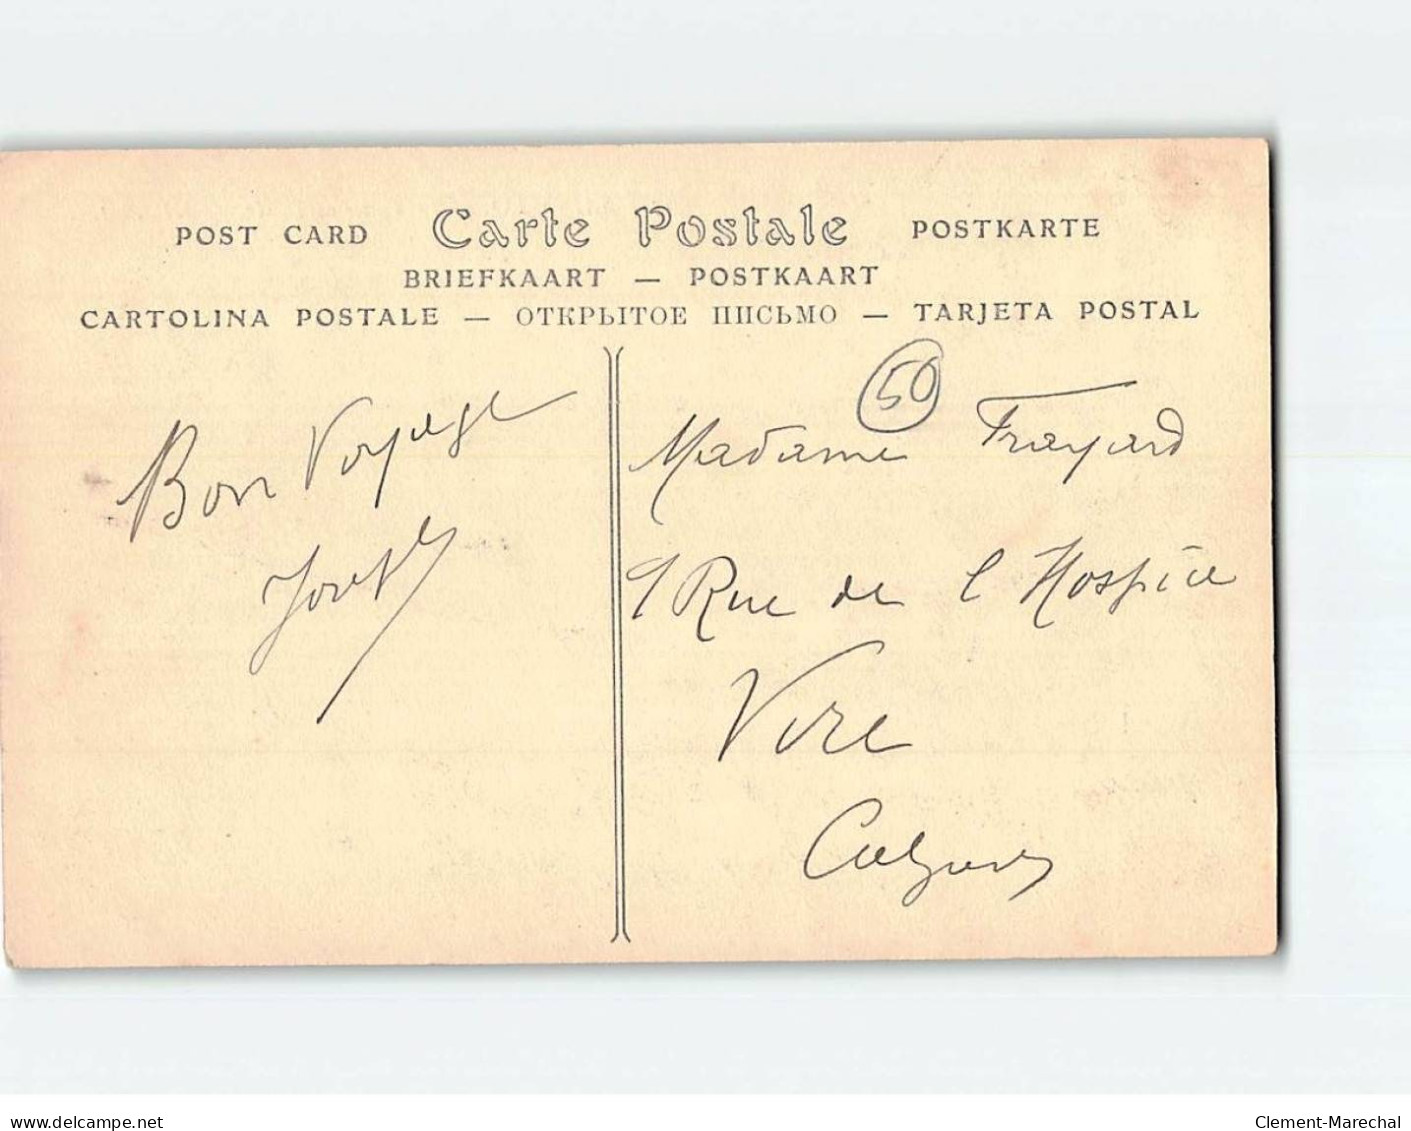 POST CARD Carte Postale POSTKARTE
BRIEFKAART — POSTKAART
CARTOLINA POSTALE — ОТКРЫТОЕ ПИСЬМО — TARJETA POSTAL
Bon Voyage
Joseph
50
Madame Frayard
9 Rue de l Hospice
Vire
Calvados
www.delcampe.net
Clement-Marechal